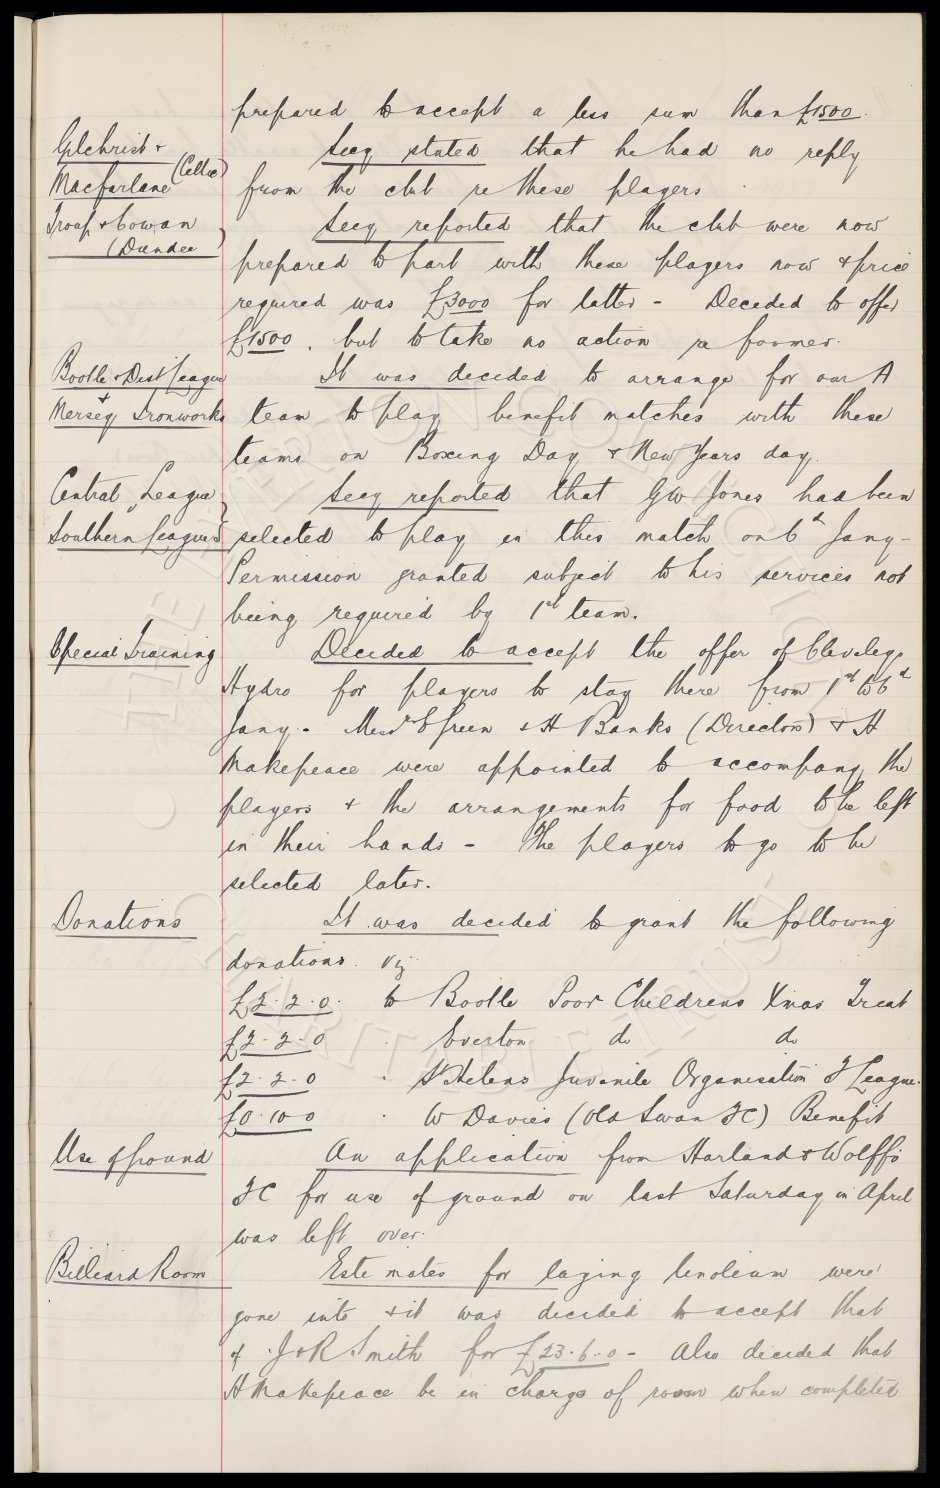 prepared to accept a less sum than £1500.
Gilchrist +
Macfarlane (Celtic)
Secy stated that he had no reply
from the club re these players.
Troup + Cowan
(Dundee)
Secy reported that the club were now
prepared to part with these players now + price
required was £3000 for latter - Decided to offer
£1500. but to take no action re former.
Bootle + Dist League
+
Mersey Ironworks
It was decided to arrange for our A
team to play benefit matches with these
teams on Boxing Day + New Years day.
Central League
v
Southern League
Secy reported that GW Jones had been
selected to play in this match on 6th Jany -
Permission granted subject to his services not
being required by 1st team.
Special Training
Decided to accept the offer of Cleveleys
Hydro for players to stay there from 1st to 6th
Jany. Messrs E Green + H Banks (Directors) + H
Makepeace were appointed to accompany the
players + the arrangements for food to be left
in their hands - The players to go to be
selected later.
Donations
It was decided to grant the following
donations. viz
£2.2.0. to Bootle Poor Childrens Xmas Treat
£2.2.0 . Everton do do
£2.2.0 . St Helens Juvenile Organisation F League.
£0.10.0 . W Davies (Old Swan FC) Benefit
Use of Ground
An application from Harland + Wolff's
FC for use of ground on last Saturday in April
was left over.
Billiard Room
Estimates for laying linoleum were
gone into + it was decided to accept that
of J + R Smith for £23.6.0 - Also decided that
H Makepeace be in charge of room when completed
THE EVERTON COLLECTION CHARITABLE TRUST